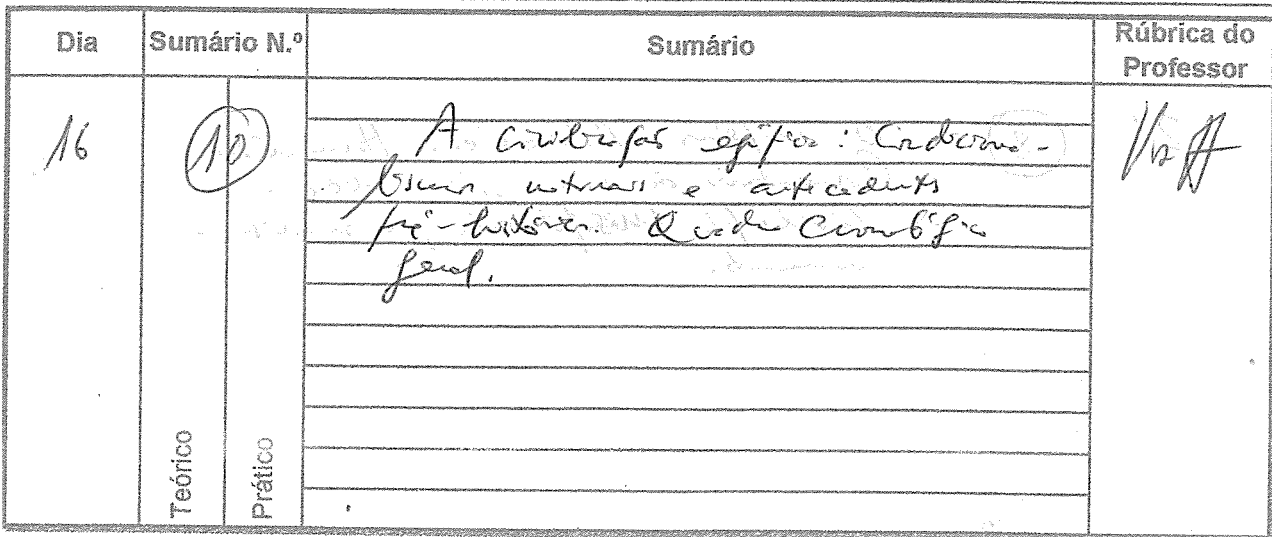 Dia Sumário N.º Sumário Rúbrica do Professor
16 10 A civilização egípcia: Condiciona-
lismos naturais e antecedentes
pré-históricos. Quadro Cronológico
geral.
Teórico Prático